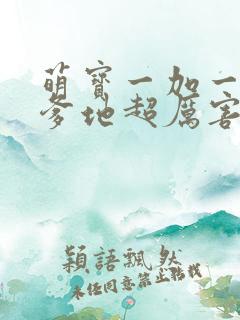 萌寳一加一
爹地超厲害
穎語飄然
未任同意禁止轉載